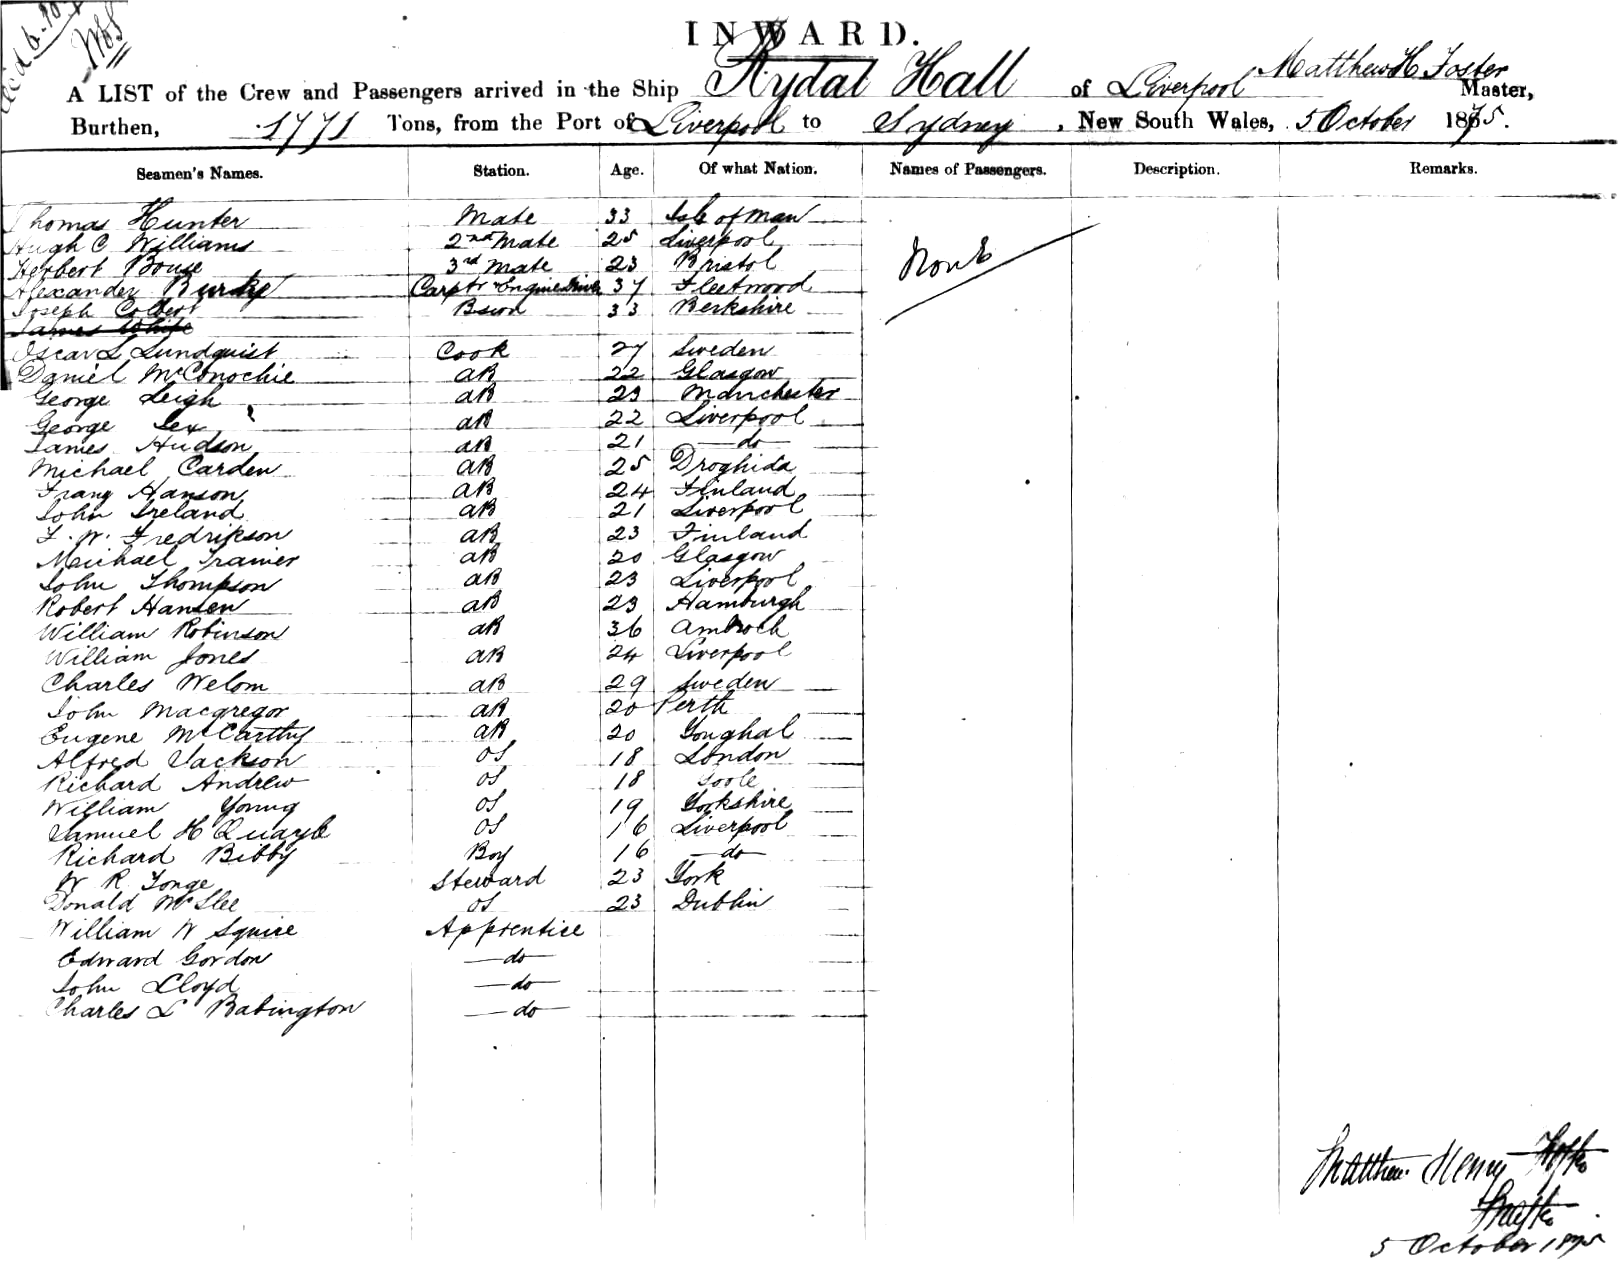 INWARD.
A LIST of the Crew and Passengers arrived in the Ship Rydal Hall of Liverpool Matthew H Foster Master,
Burthen, 1771 Tons, from the Port of Liverpool to Sydney, New South Wales, 5 October 1875.
Seamen's Names. Station. Age. Of what Nation. Names of Passengers. Description. Remarks.
Thomas Hunter Mate 33 Isle of Man
Hugh C Williams 2nd Mate 25 Liverpool
None
Herbert Bouse 3rd Mate 23 Bristol
Alexander Burke Carptr & Engine Driver 37 Fleetwood
Joseph Colbert Bswn 33 Berkshire
James White
Oscar L Lundquist Cook 27 Sweden
Daniel McConochie AB 22 Glasgow
George Leigh AB 23 Manchester
George Lex AB 22 Liverpool
James Hudson AB 21 do
Michael Carden AB 25 Droghida
Franz Hanson AB 24 Finland
John Ireland AB 21 Liverpool
F. W. Fredrikson AB 23 Finland
Michael Trainer AB 20 Glasgow
John Thompson AB 23 Liverpool
Robert Hansen AB 23 Hamburgh
William Robinson AB 36 Amlwch
William Jones AB 24 Liverpool
Charles Welom AB 29 Sweden
John Macgregor AB 20 Perth
Eugene McCarthy AB 20 Youghal
Alfred Jackson OS 18 London
Richard Andrew OS 18 Goole
William Young OS 19 Yorkshire
Samuel H Quayle OS 16 Liverpool
Richard Bibby Boy 16 do
W R Tonge Steward 23 York
Donald McSlee OS 23 Dublin
William W Squire Apprentice
Edward Gordon do
John Lloyd do
Charles L Babington do
Matthew Henry Foster
Master
5 October 1875